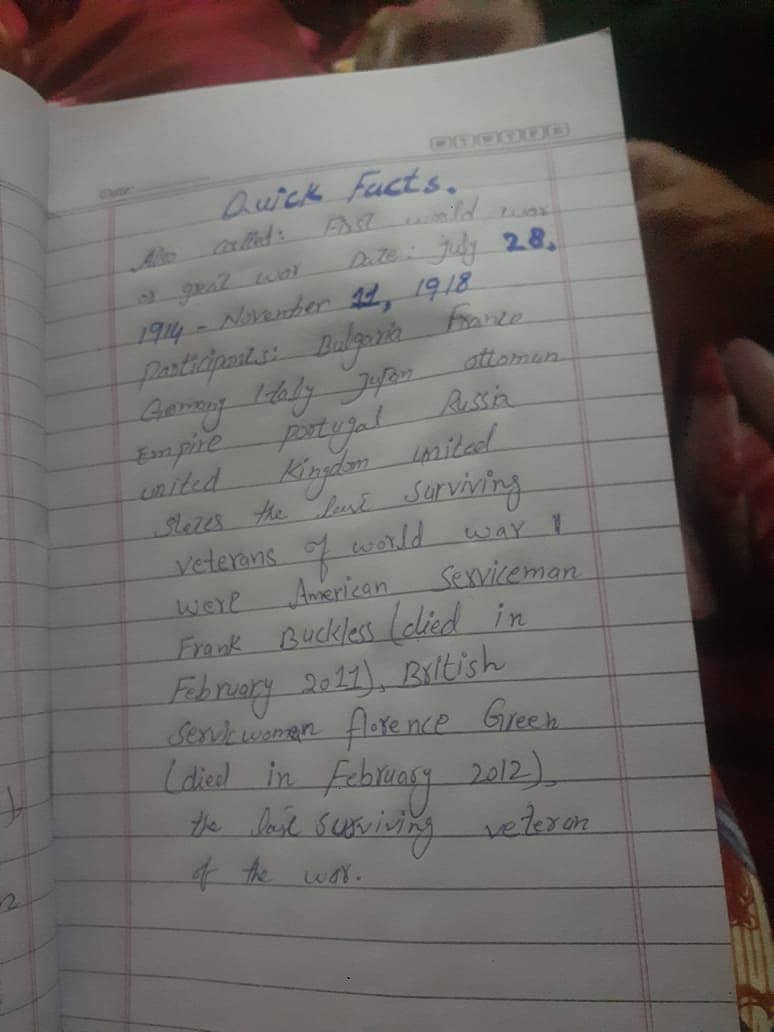 M T W T F S
Date:
Quick Facts.
Also called: First world war
or great war Date: july 28,
1914 - November 11, 1918
Participants: Bulgaria France
Germany Italy Japan ottoman
Empire portugal Russia
united Kingdom united
states the last surviving
veterans of world war 1
were American Serviceman
Frank Buckless (died in
February 2011), British
Servicwoman florence Green
(died in February 2012),
the last surviving veteran
of the war.
2